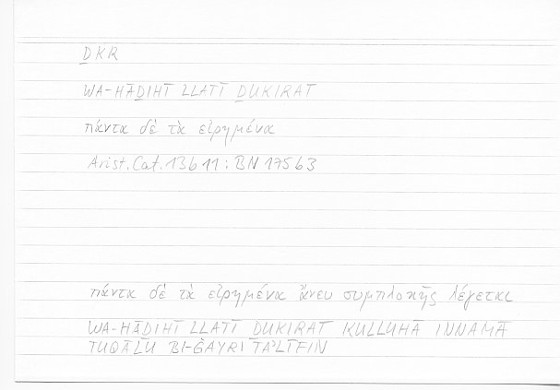 ḎKR
WA-HĀḎIHĪ LLATĪ ḎUKIRAT
πάντα δὲ τὰ εἰρημένα
Arist. Cat. 13b11 : BN 175 b3
πάντα δὲ τὰ εἰρημένα ἄνευ συμπλοκῆς λέγεται
WA-HĀḎIHĪ LLATĪ ḎUKIRAT KULLUHĀ INNAMĀ
TUQĀLU BI-ĠAYRI TAʾLĪFIN